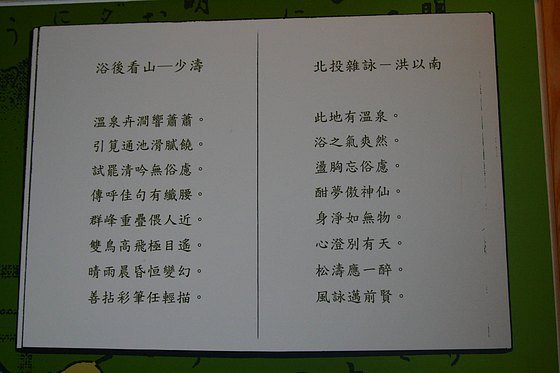 浴後看山—少濤
溫泉卉澗響蕭蕭。
引筧通池滑膩饒。
試罷清吟無俗慮。
傳呼佳句有纖腰。
群峰重疊偎人近。
雙鳥高飛極目遙。
晴雨晨昏恒變幻。
善拈彩筆任輕描。
北投雜詠－洪以南
此地有溫泉。
浴之氣爽然。
盪胸忘俗慮。
酣夢傲神仙。
身淨如無物。
心澄別有天。
松濤應一醉。
風詠邁前賢。